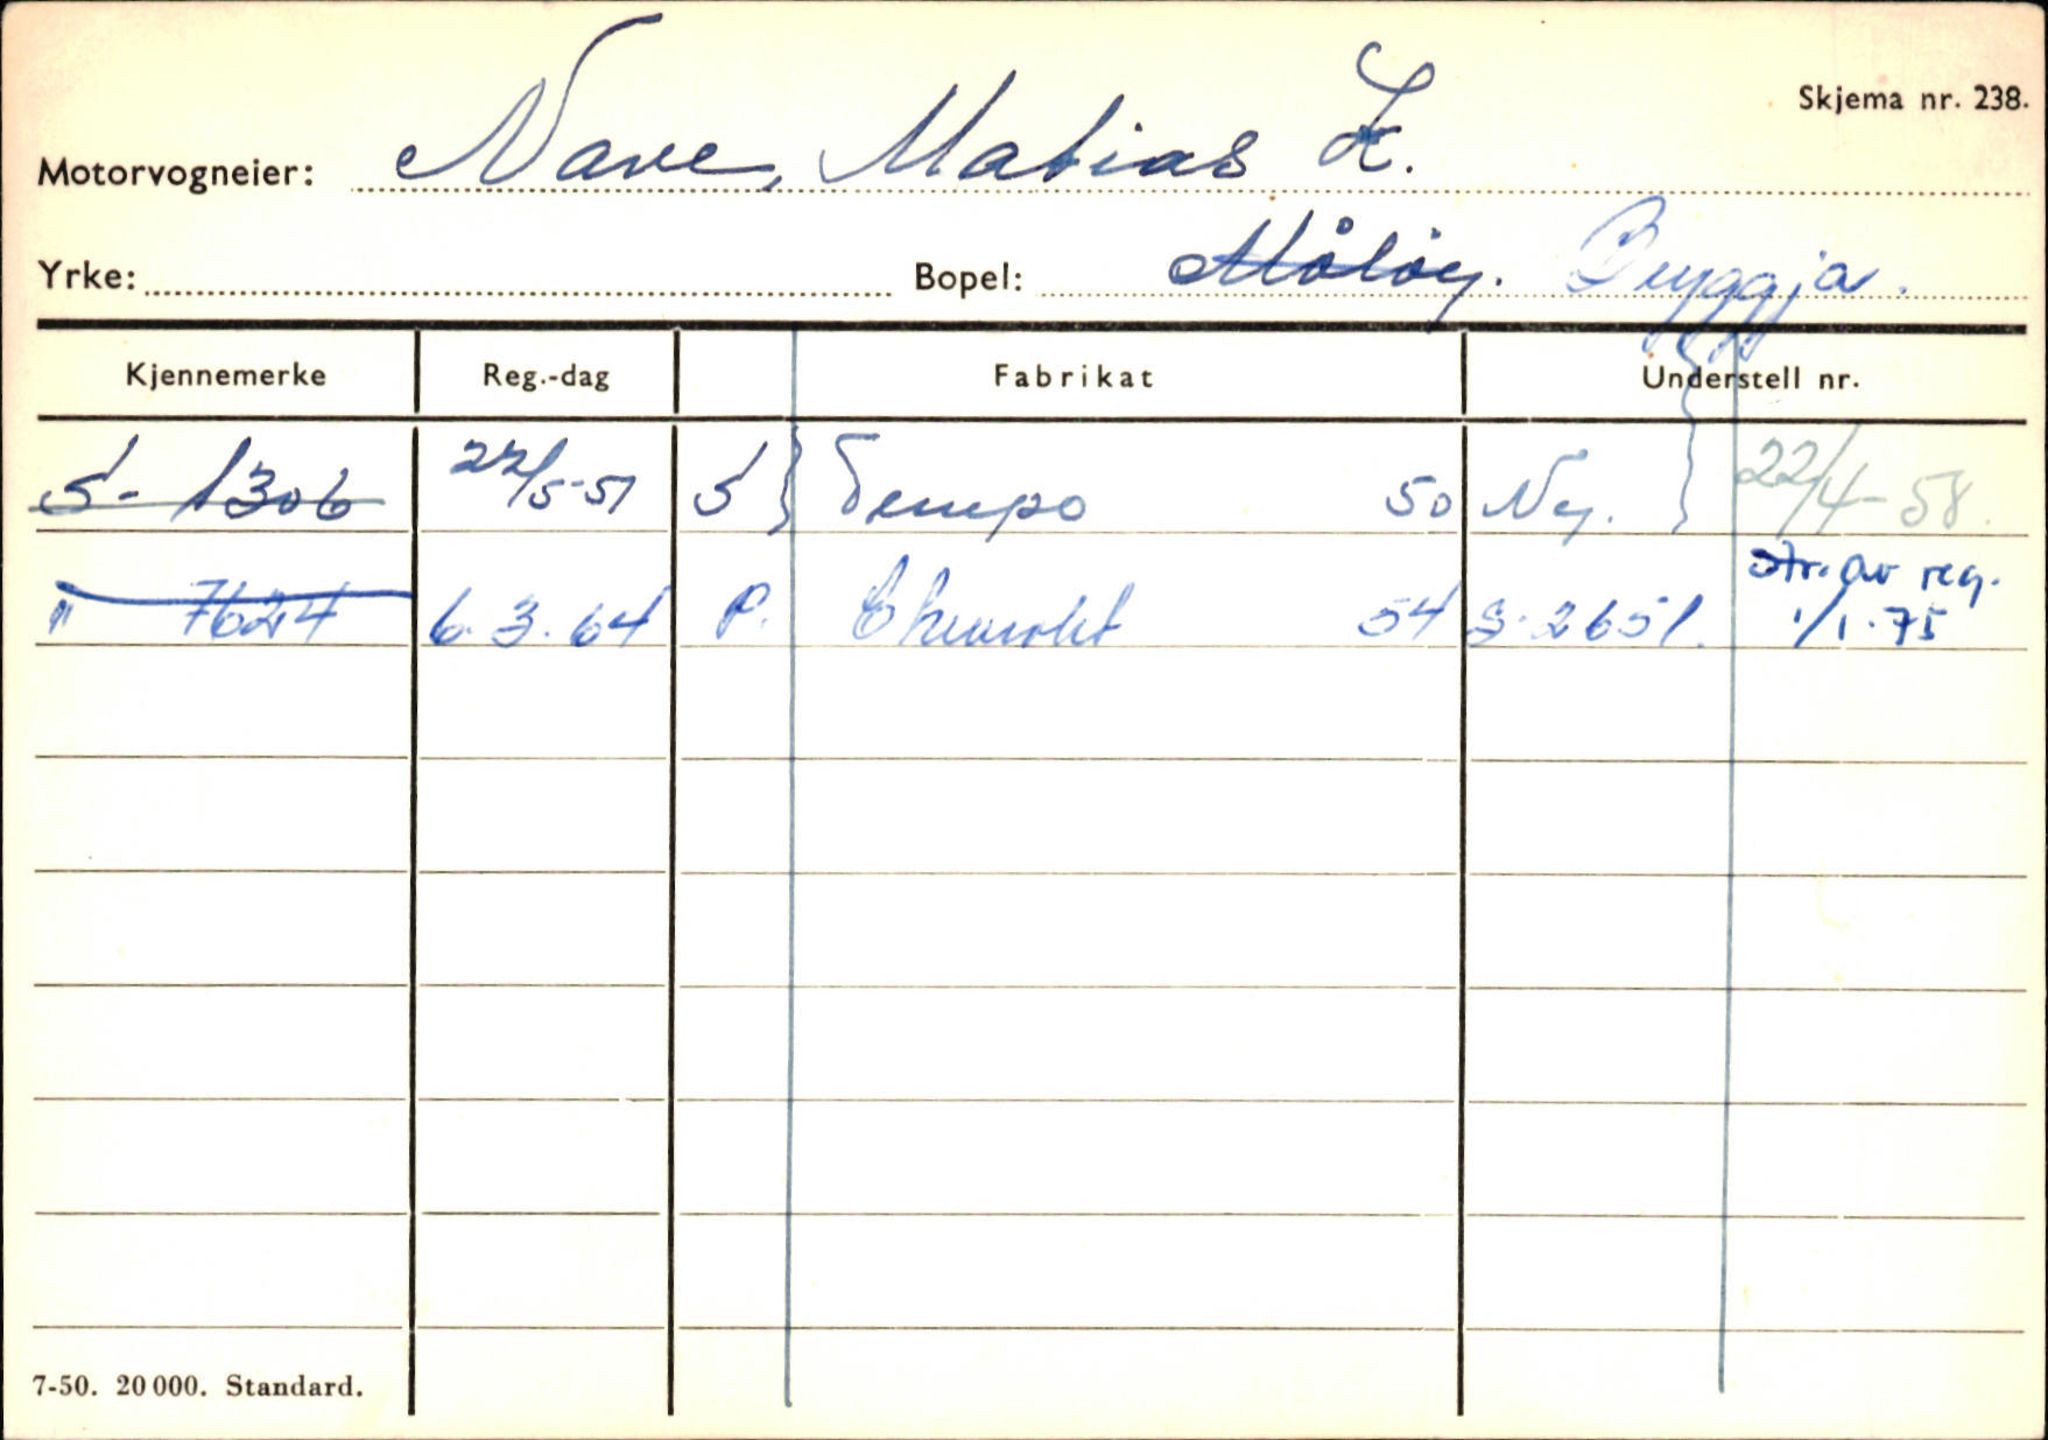 Skjema nr. 238.
Motorvogneier: Nave, Matias L.
Yrke: Bopel: Måløy. Bryggja.
Kjennemerke Reg.-dag Fabrikat Understell nr.
S- 1306 22/5-51 S Tempo 50 Ny. 22/4-58.
" 7624 6.3.64 P. Chevrolet 54 S-2651. str. av reg.
1/1.75
7-50. 20 000. Standard.